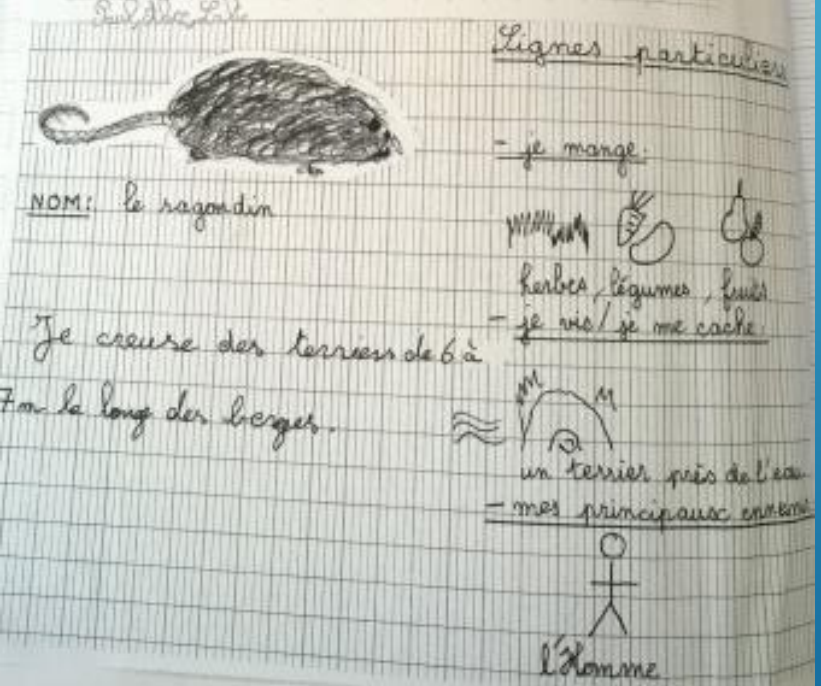 NOM: le ragondin
Je creuse des terriers de 6 à
7m le long des berges.
Signes particuliers
- je mange:
herbes, légumes, fruits
- je vis/ je me cache:
un terrier près de l'eau
- mes principaux ennemis
l'Homme